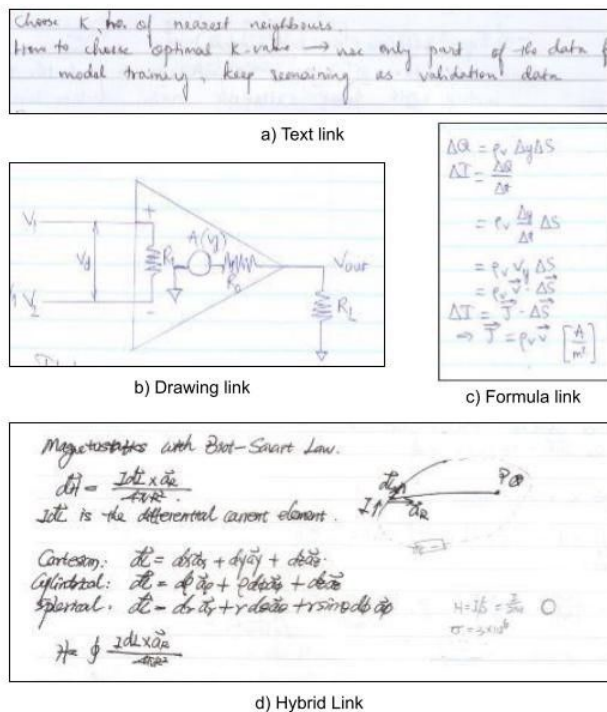 Choose K, no. of nearest neighbours.
How to choose optimal K-value → use only part of the data f
model training, keep remaining as validation data
a) Text link
V1
Vd
V2
+
-
Ri
A(Vd)
Ro
Vout
RL
b) Drawing link
ΔQ = ρv Δy ΔS
ΔI = ΔQ/Δt
= ρv Δy/Δt ΔS
= ρv Vy ΔS
= ρv V⃗ · ΔS⃗
ΔI = J⃗ · ΔS⃗
⇒ J⃗ = ρv v⃗ [A/m²]
c) Formula link
Magnetostatics with Biot-Savart Law.
dH⃗ = Idl⃗ × a⃗R / 4πR².
Idl is the differential current element.
Cartesian: dl⃗ = dxa⃗x + dya⃗y + dza⃗z.
Cylindrical: dl⃗ = dρ a⃗ρ + ρdφa⃗φ + dza⃗z
Spherical. dl⃗ = dr a⃗r + rdθa⃗θ + rsinθdφ a⃗φ
H = ∮ Idl × a⃗R / 4πR²
dl
I↑
a⃗R
P⊗
d) Hybrid Link